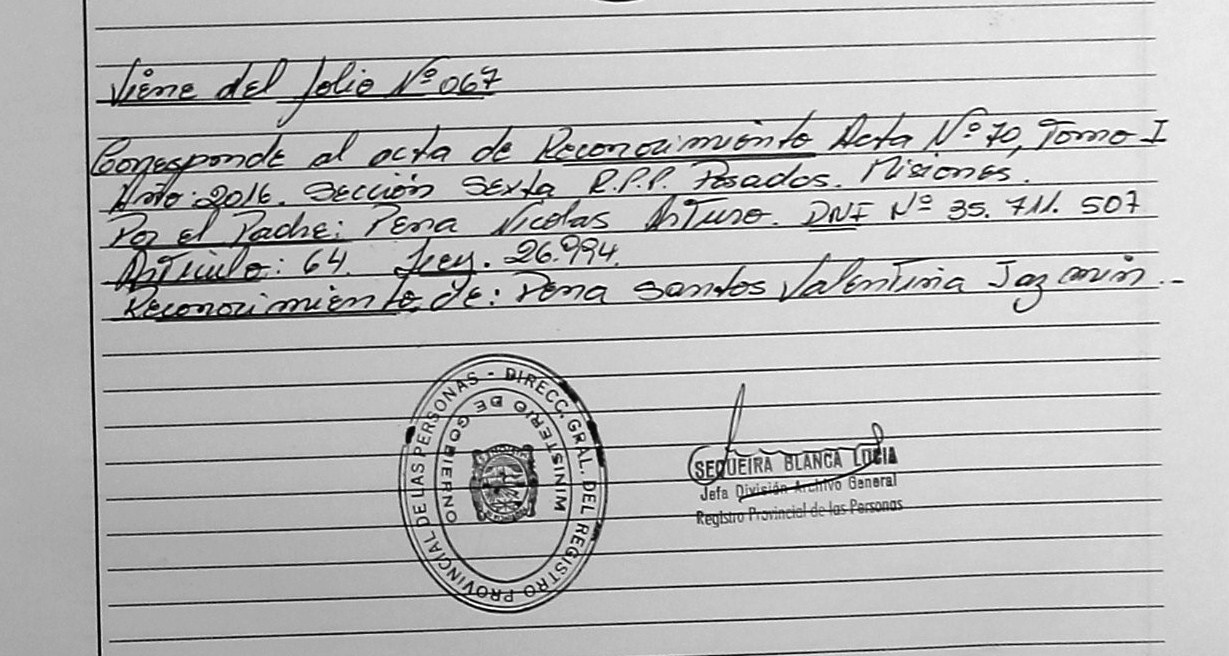 Viene del folio Nº 067
Corresponde al acta de Reconocimiento Acta Nº 70, Tomo I
Año: 2016. Sección Sexta R.P.P. Posadas. Misiones.
Por el Padre: Pena Nicolas Arturo. DNI Nº 35.711.507
Articulo: 64. Ley. 26.994.
Reconocimiento de: Pena Santos Valentina Jazmin.-
DIRECC. GRAL. DEL REGISTRO PROVINCIAL DE LAS PERSONAS -
MINISTERIO DE GOBIERNO
SEQUEIRA BLANCA LUCIA
Jefa División Archivo General
Registro Provincial de las Personas